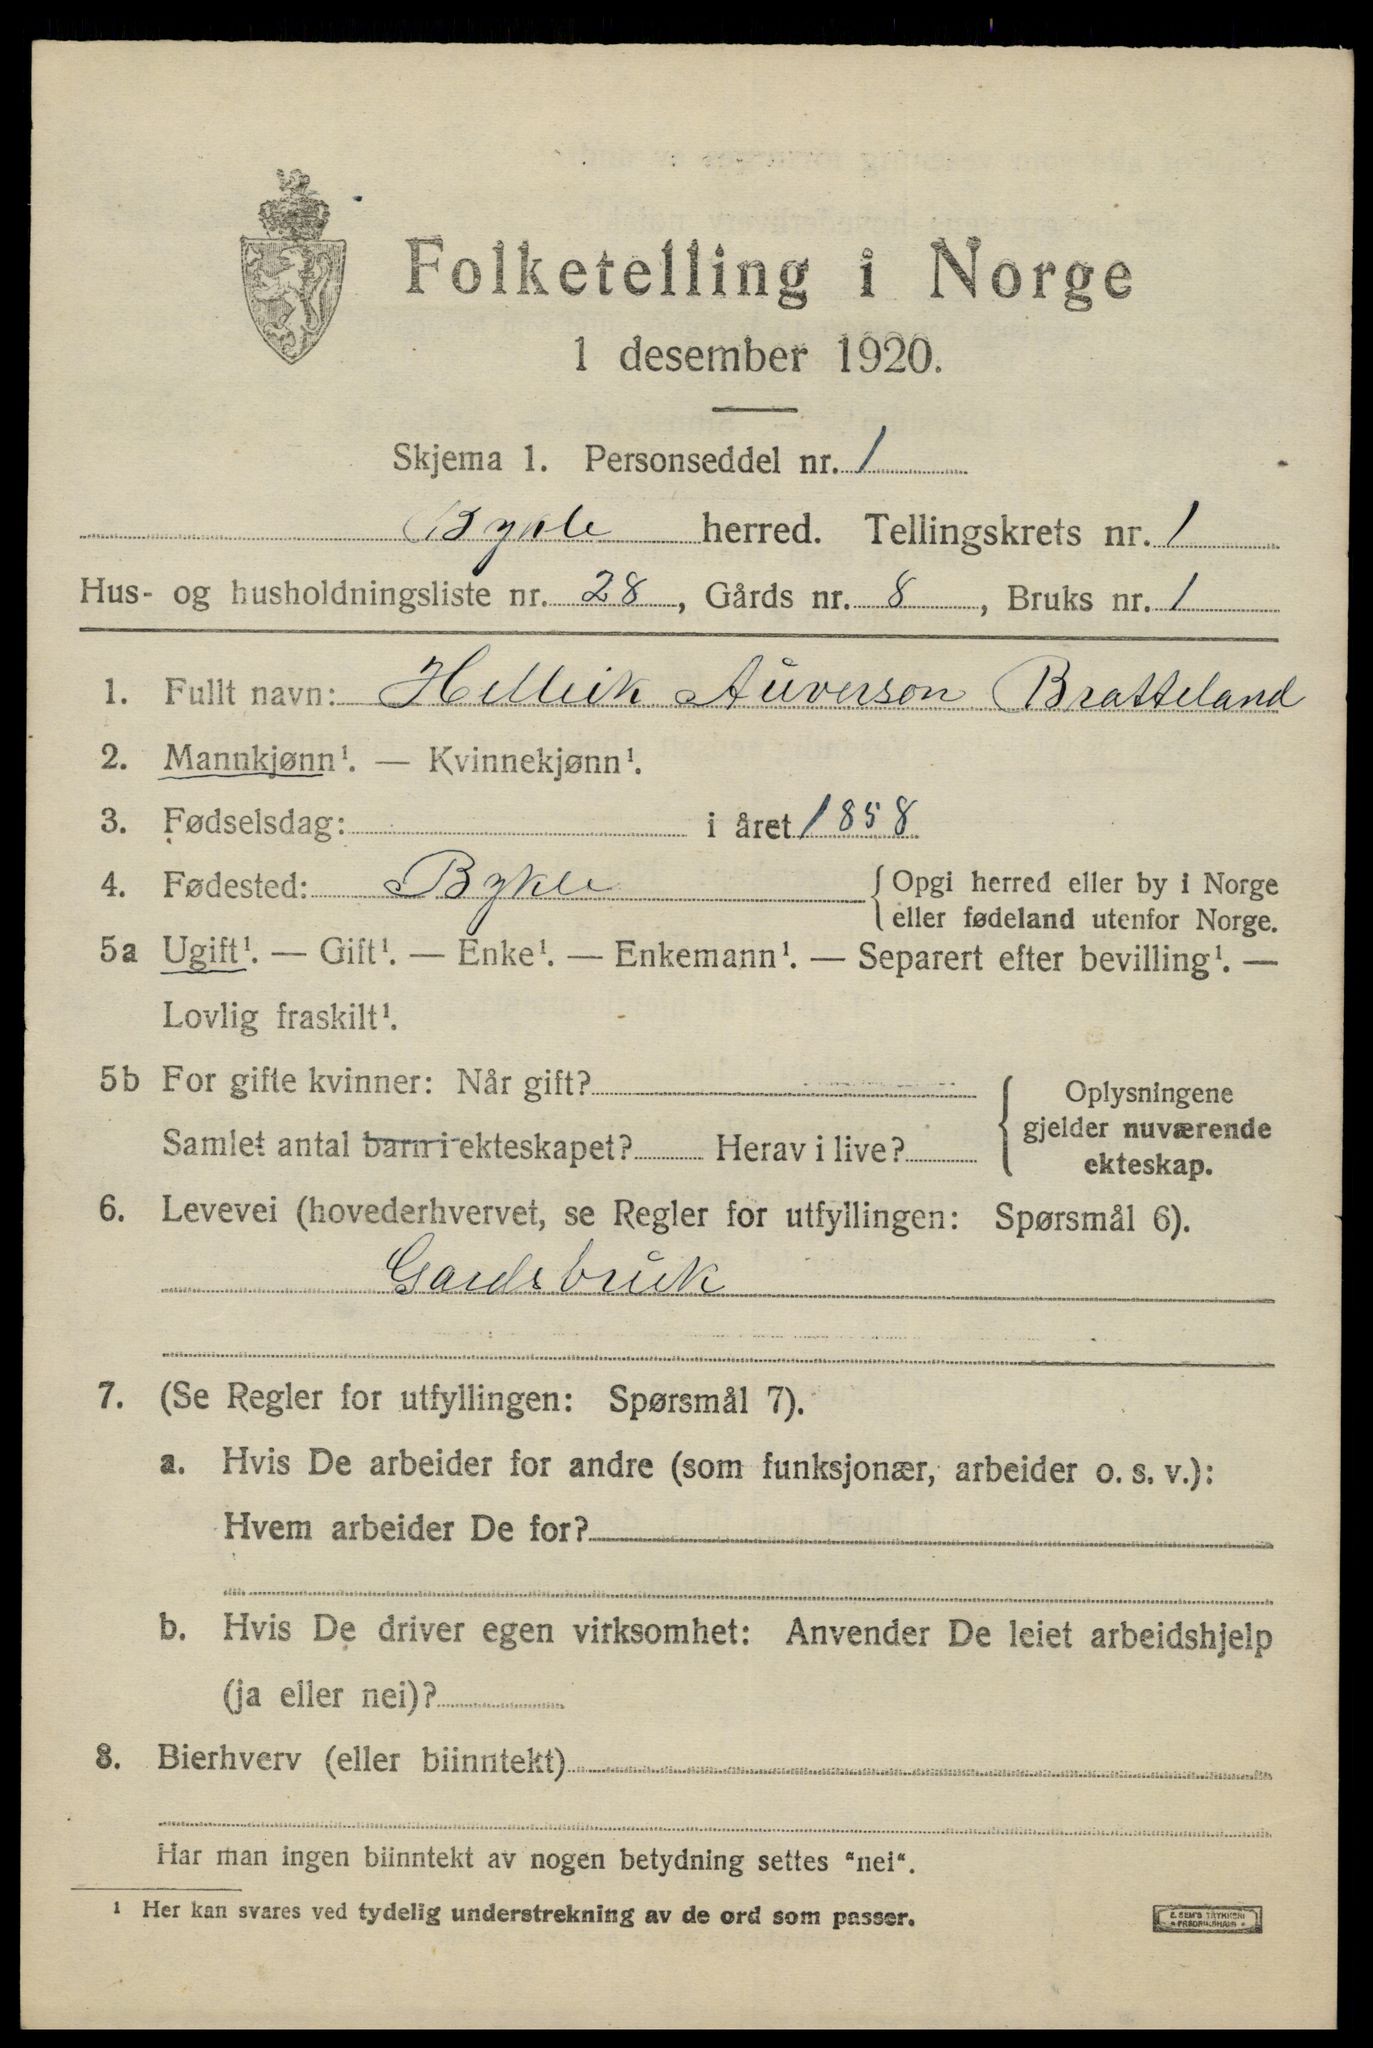 Folketelling i Norge
1 desember 1920.
Skjema 1. Personseddel nr. 1
Bykle herred. Tellingskrets nr. 1
Hus- og husholdningsliste nr. 28, Gårds nr. 8, Bruks nr. 1
1. Fullt navn: Helleik Auverson Bratteland
2. Mannkjønn¹. — Kvinnekjønn¹.
3. Fødselsdag: i året 1858
4. Fødested: Bykle {Opgi herred eller by i Norge
eller fødeland utenfor Norge.
5a Ugift¹. — Gift¹. — Enke¹. — Enkemann¹. — Separert efter bevilling¹. —
Lovlig fraskilt¹.
5b For gifte kvinner: Når gift?
Samlet antal barn i ekteskapet? Herav i live?
Oplysningene
gjelder nuværende
ekteskap.
6. Levevei (hovederhvervet, se Regler for utfyllingen: Spørsmål 6).
Gardsbruk
7. (Se Regler for utfyllingen: Spørsmål 7).
a. Hvis De arbeider for andre (som funksjonær, arbeider o. s. v.):
Hvem arbeider De for?
b. Hvis De driver egen virksomhet: Anvender De leiet arbeidshjelp
(ja eller nei)?
8. Bierhverv (eller biinntekt)
Har man ingen biinntekt av nogen betydning settes "nei".
¹ Her kan svares ved tydelig understrekning av de ord som passer.
E. SEM'S TRYKKERI
FREDRIKSHALD